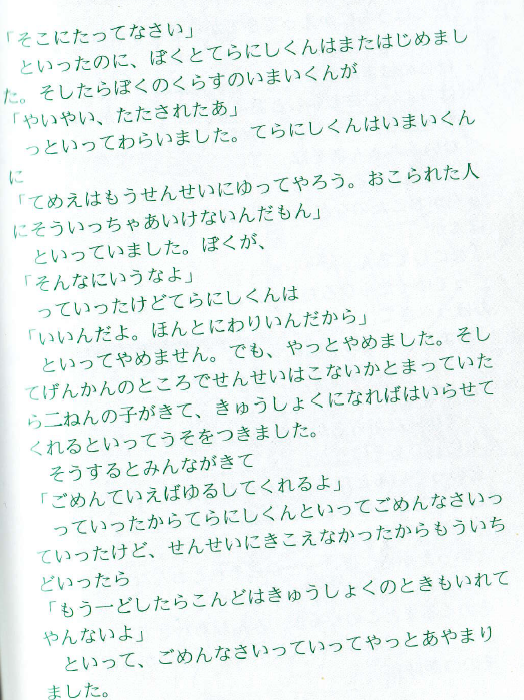 「そこにたってなさい」
といったのに、ぼくとてらにしくんはまたはじめまし
た。そしたらぼくのくらすのいまいくんが
「やいやい、たたされたあ」
っといってわらいました。てらにしくんはいまいくん
に
「てめえはもうせんせいにゆってやろう。おこられた人
にそういっちゃあいけないんだもん」
といっていました。ぼくが、
「そんなにいうなよ」
っていったけどてらにしくんは
「いいんだよ。ほんとにわりいんだから」
といってやめません。でも、やっとやめました。そし
てげんかんのところでせんせいはこないかとまっていた
ら二ねんの子がきて、きゅうしょくになればはいらせて
くれるといってうそをつきました。
そうするとみんながきて
「ごめんていえばゆるしてくれるよ」
っていったからてらにしくんといってごめんなさいっ
ていったけど、せんせいにきこえなかったからもういち
どいったら
「もう一どしたらこんどはきゅうしょくのときもいれて
やんないよ」
といって、ごめんなさいっていってやっとあやまり
ました。